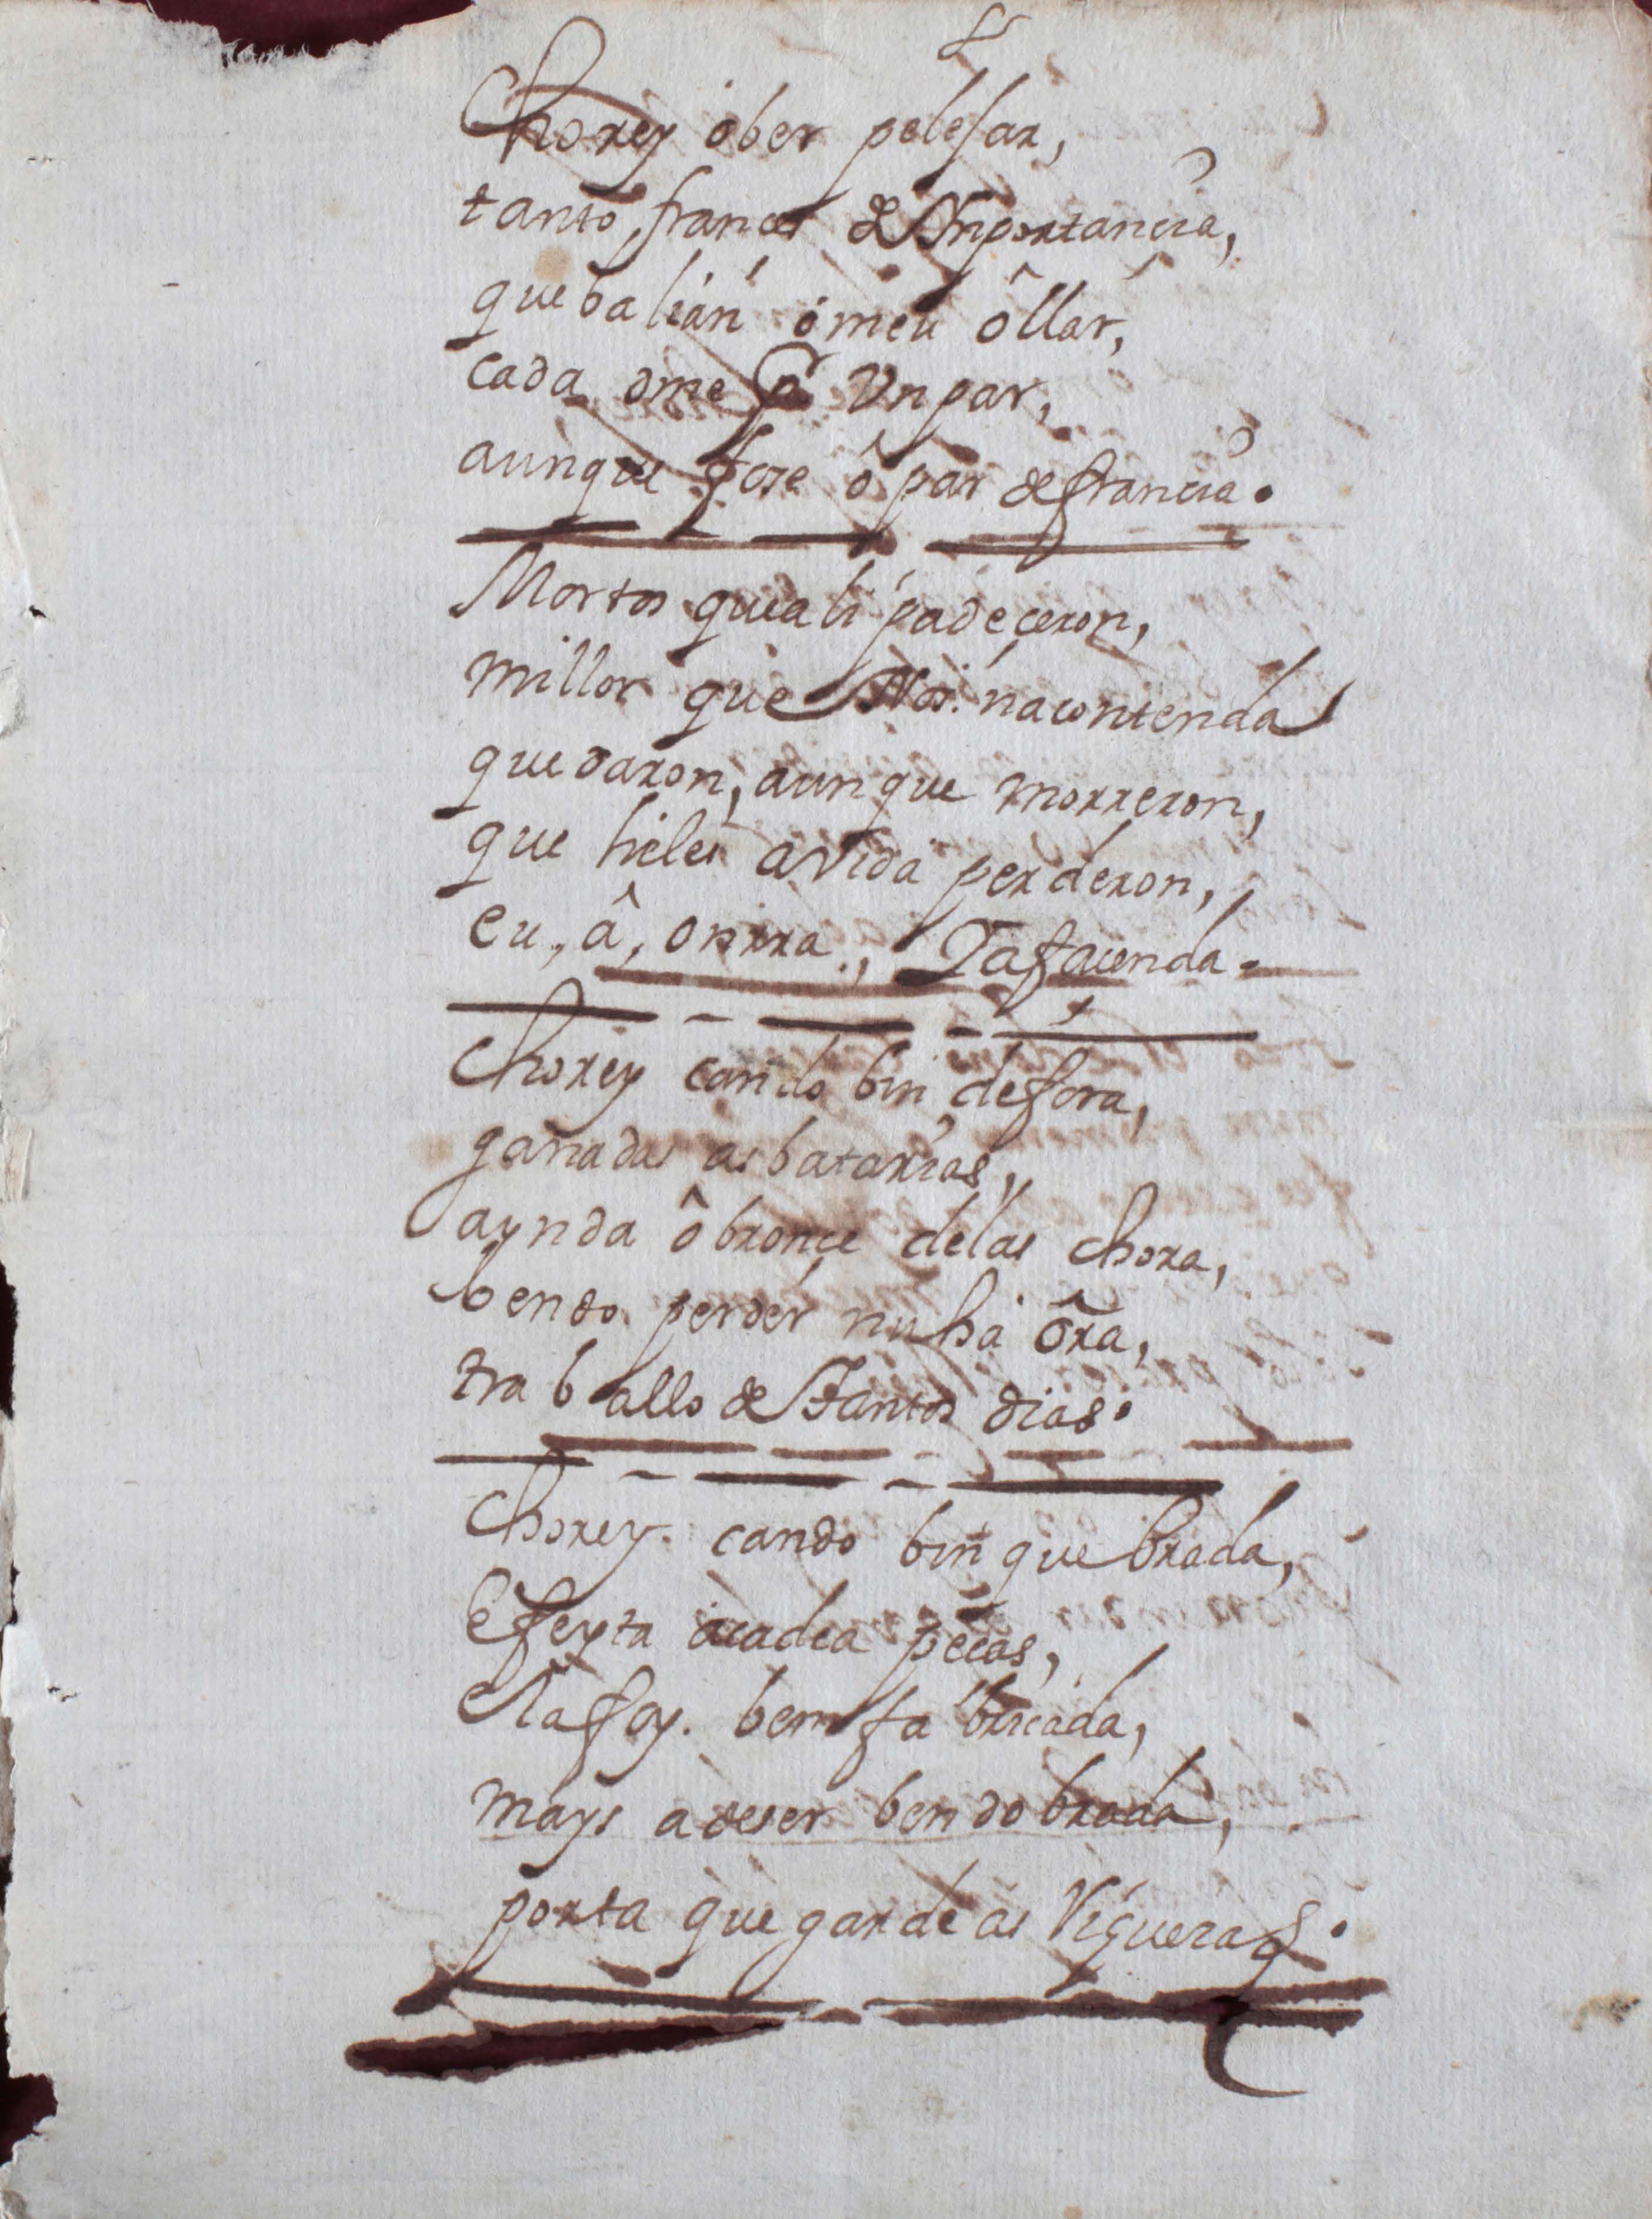 Chorey ôber pelesar,
tanto frances de Ynportancia,
quebalian ómeu ôllar,
cada ome p.ʳ Vnpar,
aunque fose ô par defrancia.
Mortos queali padeceron,
millor que Nos. nacontenda
quedaron, aunque morreron,
que heles avida perderon,
eu, â, onrra, Iafacenda.
Chorey cando bin defora,
ganadas asbatarias,
aynda ôbronce delas chora,
bendo perder nuhá ôra,
traballo de tantos dias.
Chorey. cando bin quebrada,
Efeyta acadea pecas,
Elafoy. bem fabricada,
mays adeser bendobrada,
porta quegarde as Vigueras.